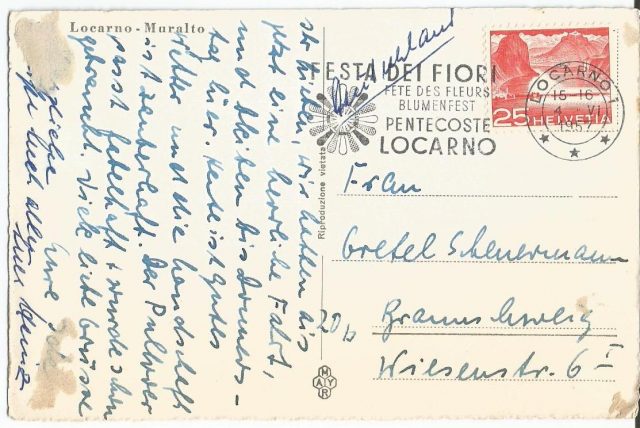 Locarno - Muralto
Ihr Lieben, wir hatten bis
jetzt eine herrliche Fahrt,
und bleiben bis Donners-
tag hier. Heute ist gutes
Wetter und die Landschaft
ist zauberhaft. Der Pullover
passt fabelhaft + wurde schon
gebraucht. Viele liebe Grüsse
Euch allen
Eure
Euer Heinz
Riproduzione vietata
MAYR
Deutschland
FESTA DEI FIORI
FÊTE DES FLEURS
BLUMENFEST
PENTECOSTE
LOCARNO
LOCARNO 1
15-16
VI
1957
25 HELVETIA
Frau
Gretel Scheuermann
Braunschweig
Wiesenstr. 6 I
20p